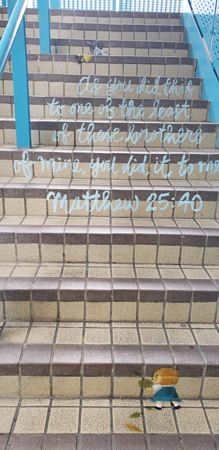 As you did this
to one of the least
of these brothers
of mine, you did it to me
Matthew 25:40